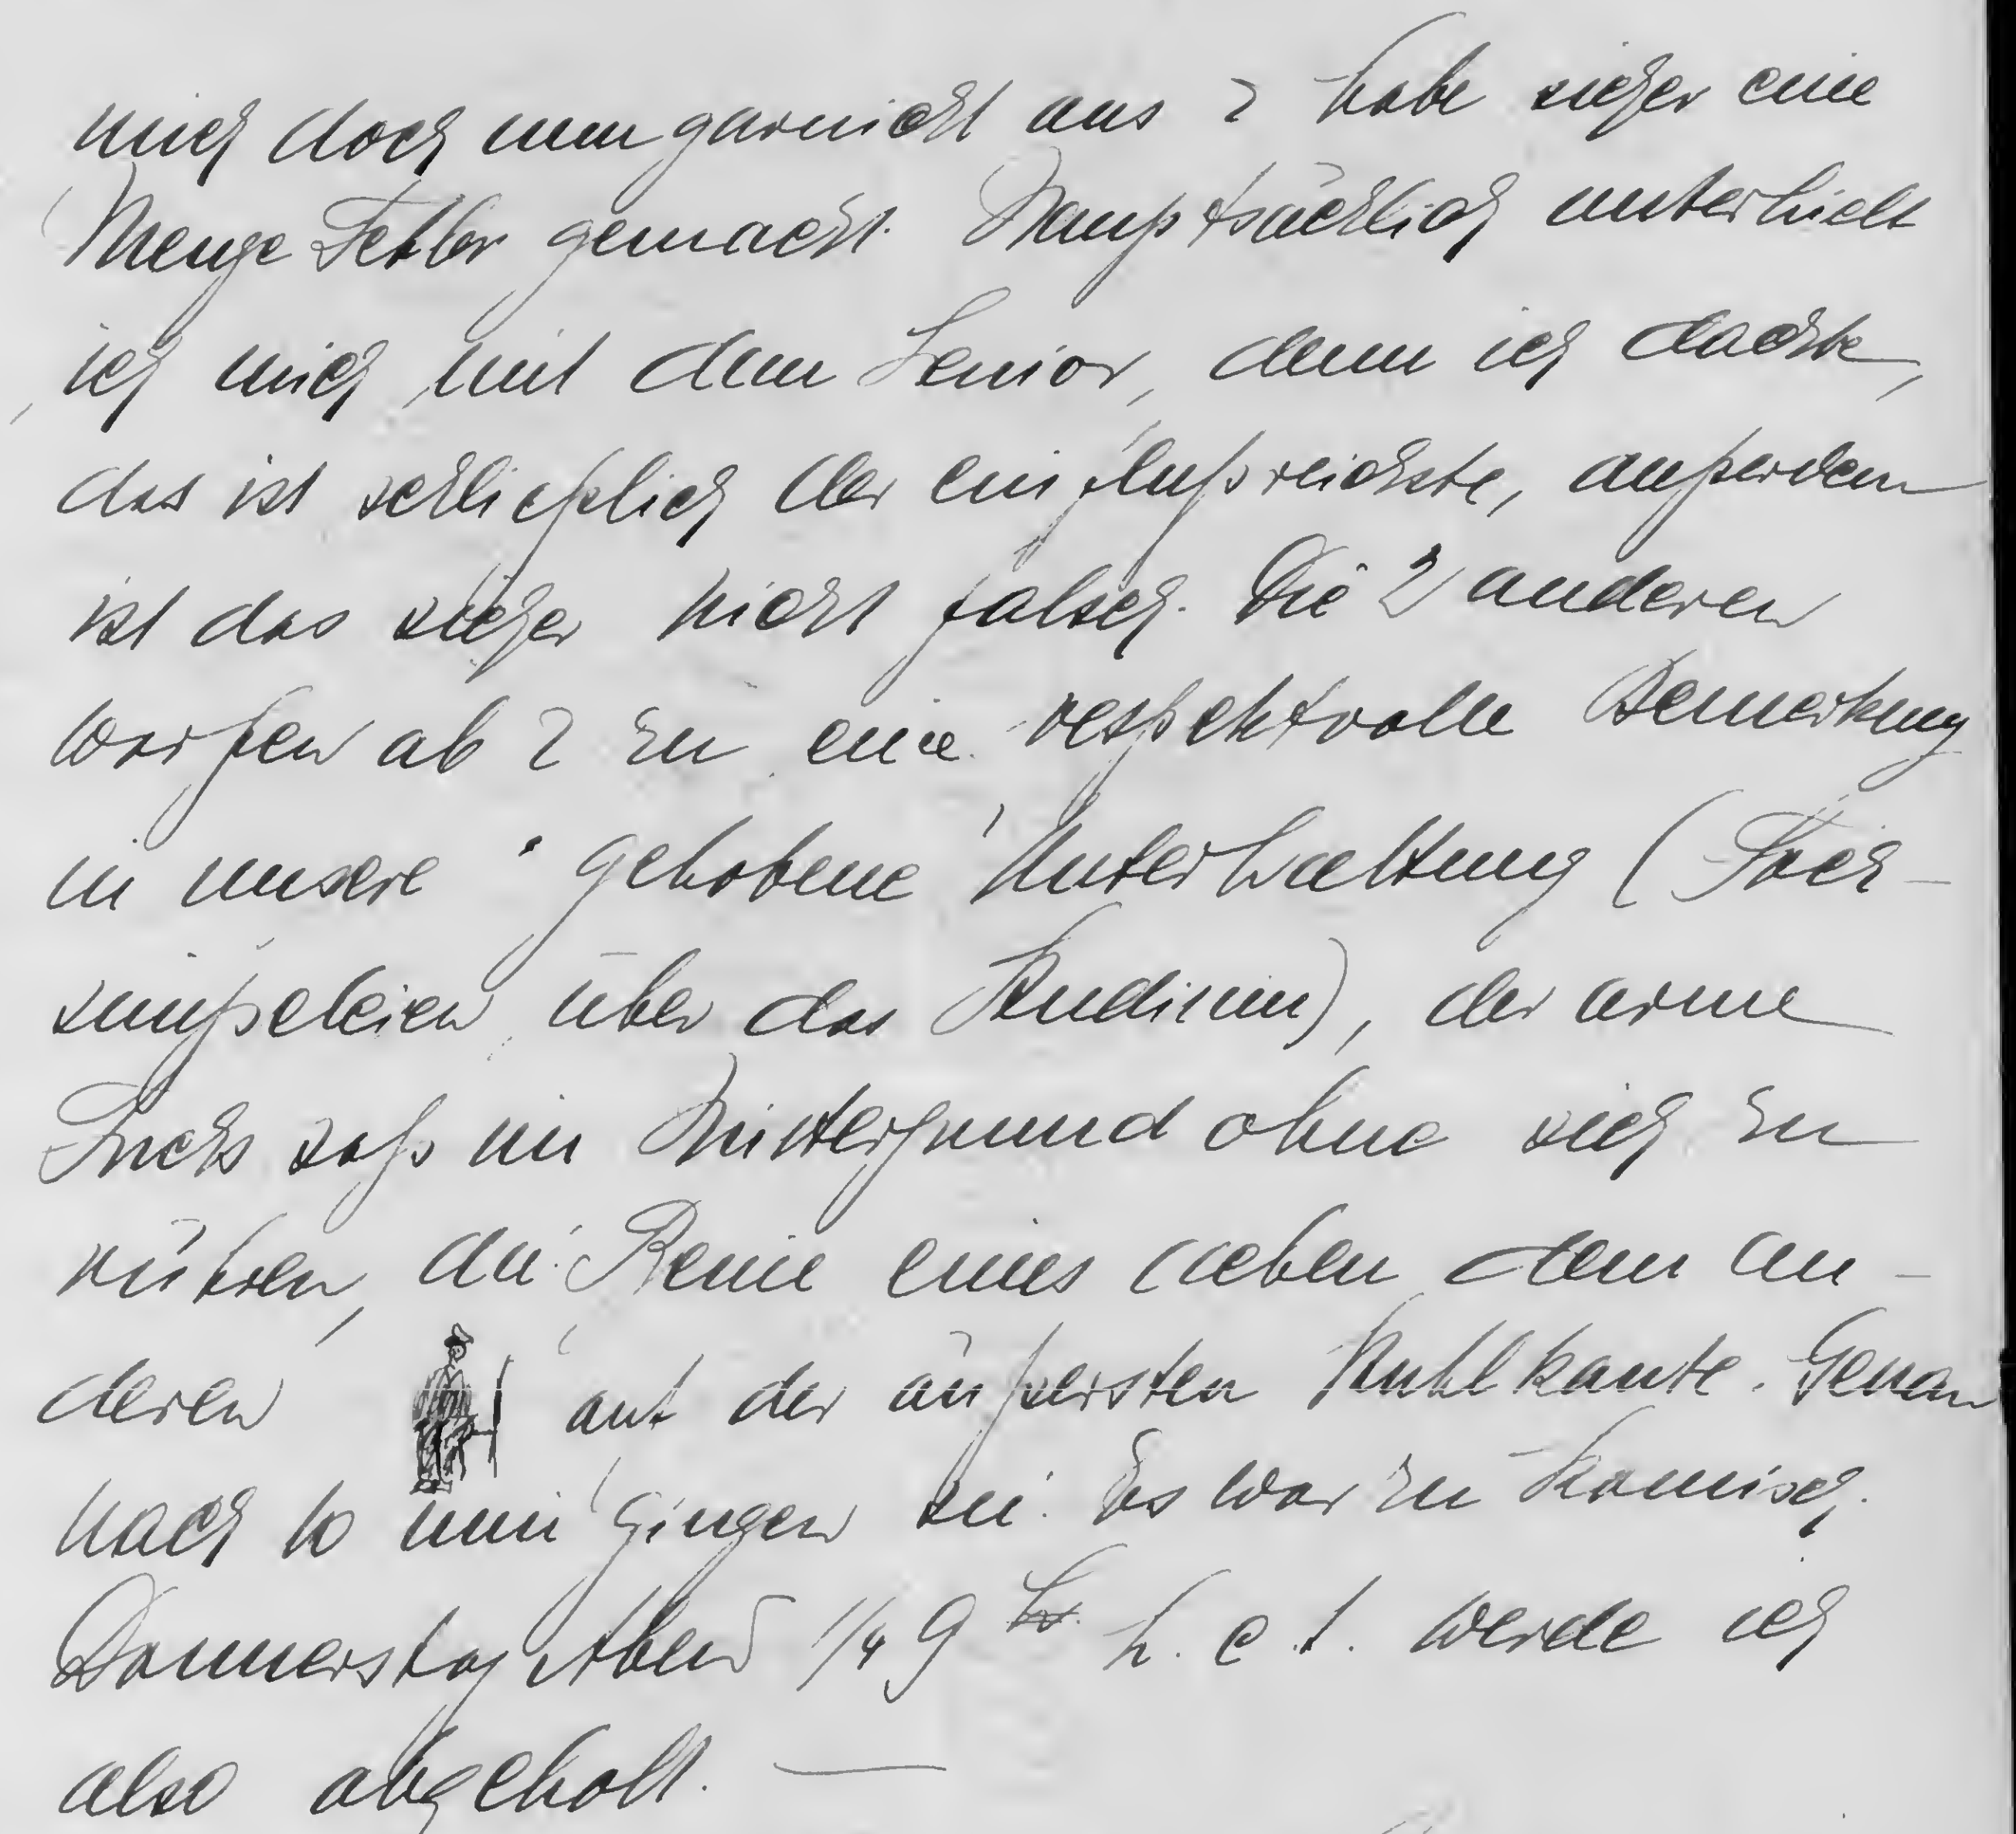 mich doch nun garnicht aus & habe sicher eine
Menge Fehler gemacht. Hauptsächlich unterhielt
ich mich mit dem Senior, denn ich dachte,
das ist schließlich der einflußreichste, außerdem
ist das sicher nicht falsch. Die 2 anderen
warfen ab & zu eine respektvolle Bemerkung
in unsere gehobene Unterhaltung (Fach-
simpeleien über das Studium), der arme
Fuchs saß im Hintergrund ohne sich zu
rühren, die Beine eines neben dem an-
deren auf der äußersten Stuhlkante. Genau
nach 10 min gingen sie. Es war zu komisch.
Donnerstag Abend 1/4 9 h. c. t. werde ich
also abgeholt. —